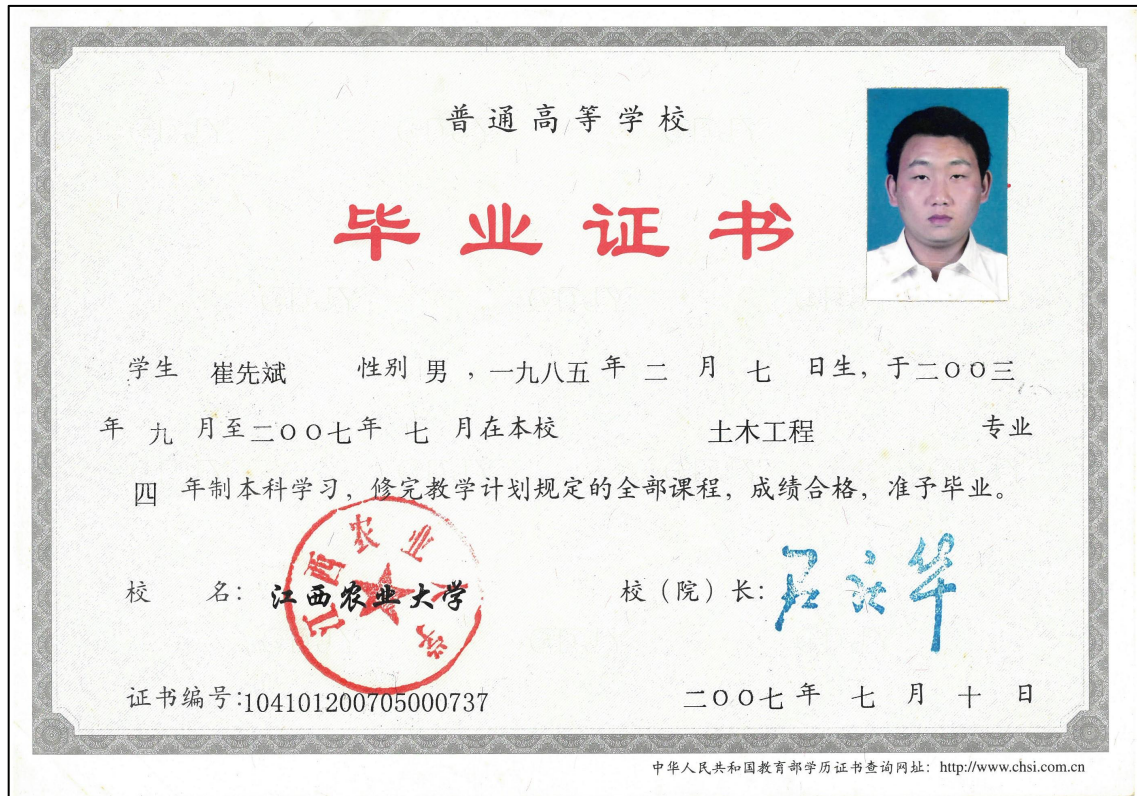 普通高等学校
毕业证书
学生 崔先斌 性别 男 ，一九八五 年 二 月 七 日生，于二〇〇三
年 九 月至二〇〇七年 七 月在本校 土木工程 专业
四 年制本科学习，修完教学计划规定的全部课程，成绩合格，准予毕业。
江西农业大学
校 名：江西农业大学 校（院）长：
证书编号:104101200705000737 二〇〇七 年 七 月 十 日
中华人民共和国教育部学历证书查询网址：http://www.chsi.com.cn